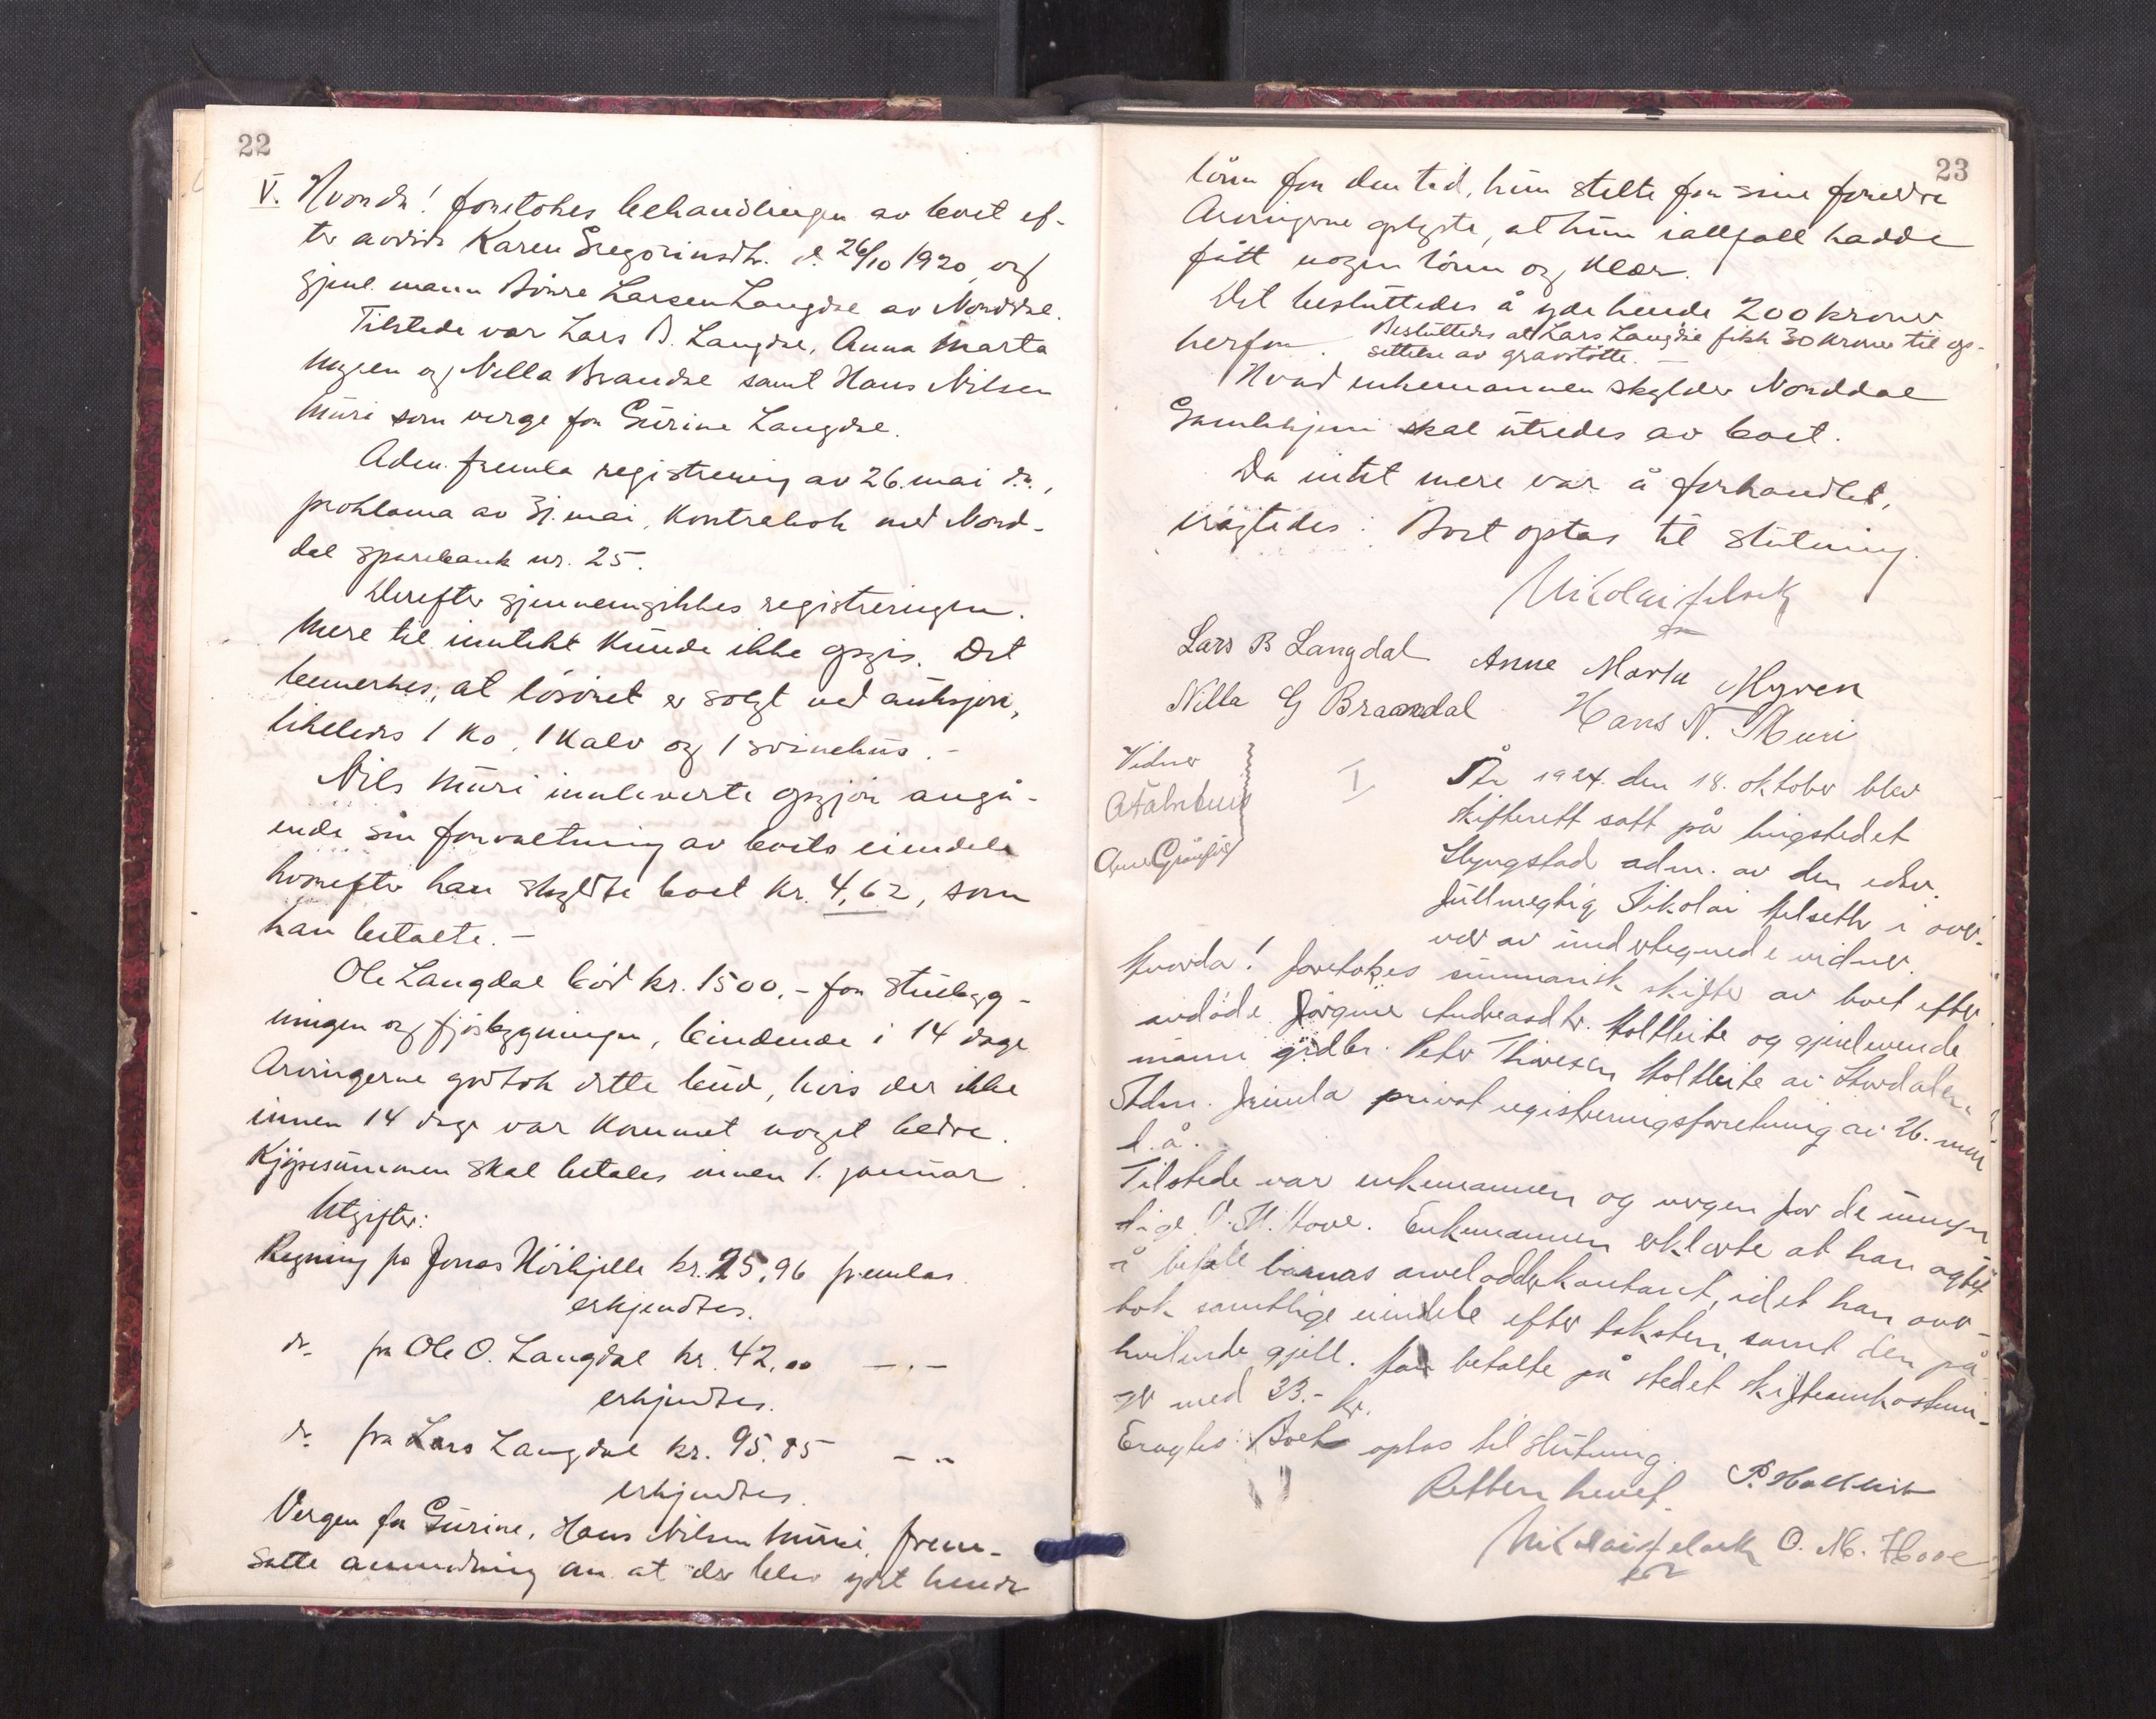 22
V. Hvorda! foretokes behandlingen av boet ef-
ter avdøde Karen Gregoriusdtr. d. 26/10 1920 og
gjenl. mann Børre Larsen Langdal av Norddal.
Tilstede var Lars B. Langdal, Anna Marta
Myren og Nilla Brandal samt Hans Nilsen
Muri som verge for Gurine Langdal.
Adm. fremla registrering av 26. mai d.å.,
proklama av 31. mai, kontrabok med Nord-
dal sparebank nr. 25.
Derefter gjennemgikkes registreringen.
Mere til inntekt kunde ikke opgis. Det
bemerkes, at løsøret er solgt ved auksjon,
likeledes 1 ko, 1 kalv og 1 svinehus. -
Nils Muri innleverte opgjør angå-
ende sin forvaltning av boets eiendele
hvorefter han skyldte boet kr. 4,62, som
han betalte. -
Ole Langdal bød kr. 1500.- for stuebyg-
ningen og fjøsbygningen, bindende i 14 dage
Arvingerne godtok dette bud, hvis der ikke
innen 14 dage var kommet noget bedre.
Kjøpesummen skal betales innen 1. januar.
Utgifter:
Regning fra Jonas Hörkjelle kr. 25,96 fremlas
erkjendtes.
do fra Ole O. Langdal kr. 42,00 - . -
erkjendtes.
do fra Lars Langdal kr. 95.85 - . -
erkjendtes.
Vergen for Gurine, Hans Nilsen Muri, frem-
satte anmodning om at der blev ydet hende
23
lønn for den tid, hun stelte for sine foreldre
Arvingerne oplyste, at hun iallfall hadde
fått nogen lønn og klær.
Det besluttedes å yde hende 200 kroner
herfor. Besluttedes at Lars Langdal fikk 30 kroner til op-
settelse av gravstøtte.
Hvad enkemannen skylder Norddal
Gamlehjem skal utredes av boet.
Da intet mere var å forhandlet,
eragtedes: Boet optas til slutning.
Nikolai Jelseth
Lars B Langdal Anne Marta Myren
Nilla G Braandal Hans N. Muri
Vidner
I År 1924 den 18. oktober blev
skifterett satt på tingstedet
Slyngstad adm. av den edsv.
fullmegtig Nikolai Helseth i over-
vær av undertegnede vidner.
Hvorda! foretokes summarisk skifte av boet efter
avdøde Jørgine Andreasdtr. Holtleite og gjenlevende
mann grdbr. Peter Thoresen Holtleite av Stordalen.
Adm. fremla privat registreringsforretning av 26. mai
d.å.
Tilstede var enkemannen og vergen for de umyn
dige O. M. Hove. Enkemannen erklærte at han agtet
å betale barnas arvelodder kontant, idet han over-
tok samtlige eiendele efter taksten, samt den på-
hvilende gjell. Han betalte på stedet skifteomkostnin-
ger med 33.- kr.
Eragtes: Boet optas til slutning.
Retten hevet. P. Holtleite
Nikolai Jelseth O. M. Hove